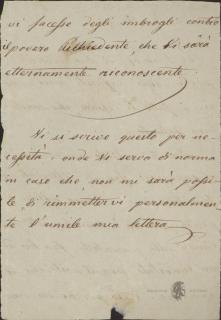 vi facesse degli imbrogli contro
il povero Richiedente, che Vi sarà
etternamente riconoscente.
Vi si scrive questo per ne-
cessità, onde Vi serva di norma
in caso che non mi sarà possibi-
le di rimmettervi personalmen-
te l'umile mia lettera